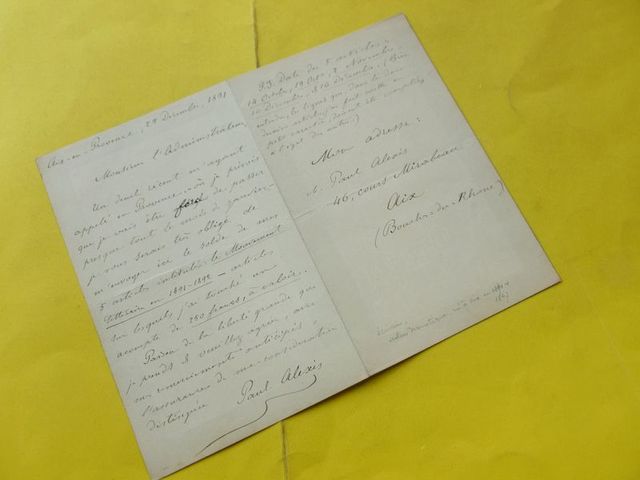 Aix-en-Provence, 29 Décembre, 1891
Monsieur l'Administrateur,
Un deuil récent m'ayant
appelé en Provence, où je prévois
que je vais être forcé de passer
presque tout le mois de Janvier
je vous serais très obligé de
m'envoyer ici le solde de mes
5 articles intitulés le Mouvement
littéraire en 1891-1892 — articles
sur lesquels j'ai touché un
acompte de 250 francs, à valoir.
Pardon de la liberté grande que
je prends & veuillez agréer, avec
mes remerciements anticipés
l'assurance de ma considération
distinguée
Paul Alexis
P.S. Date des 5 articles:
14 Octobre, 19 Octo, 2 Novembre
10 Décembre, & 16 Décembre. (Bien
entendu, les lignes que, dans les deux
articles,
petit caractère, doivent être comptées
à l'égal des autres.)
Mon adresse:
M. Paul Alexis
46, cours Mirabeau
Aix
(Bouches-du-Rhône)